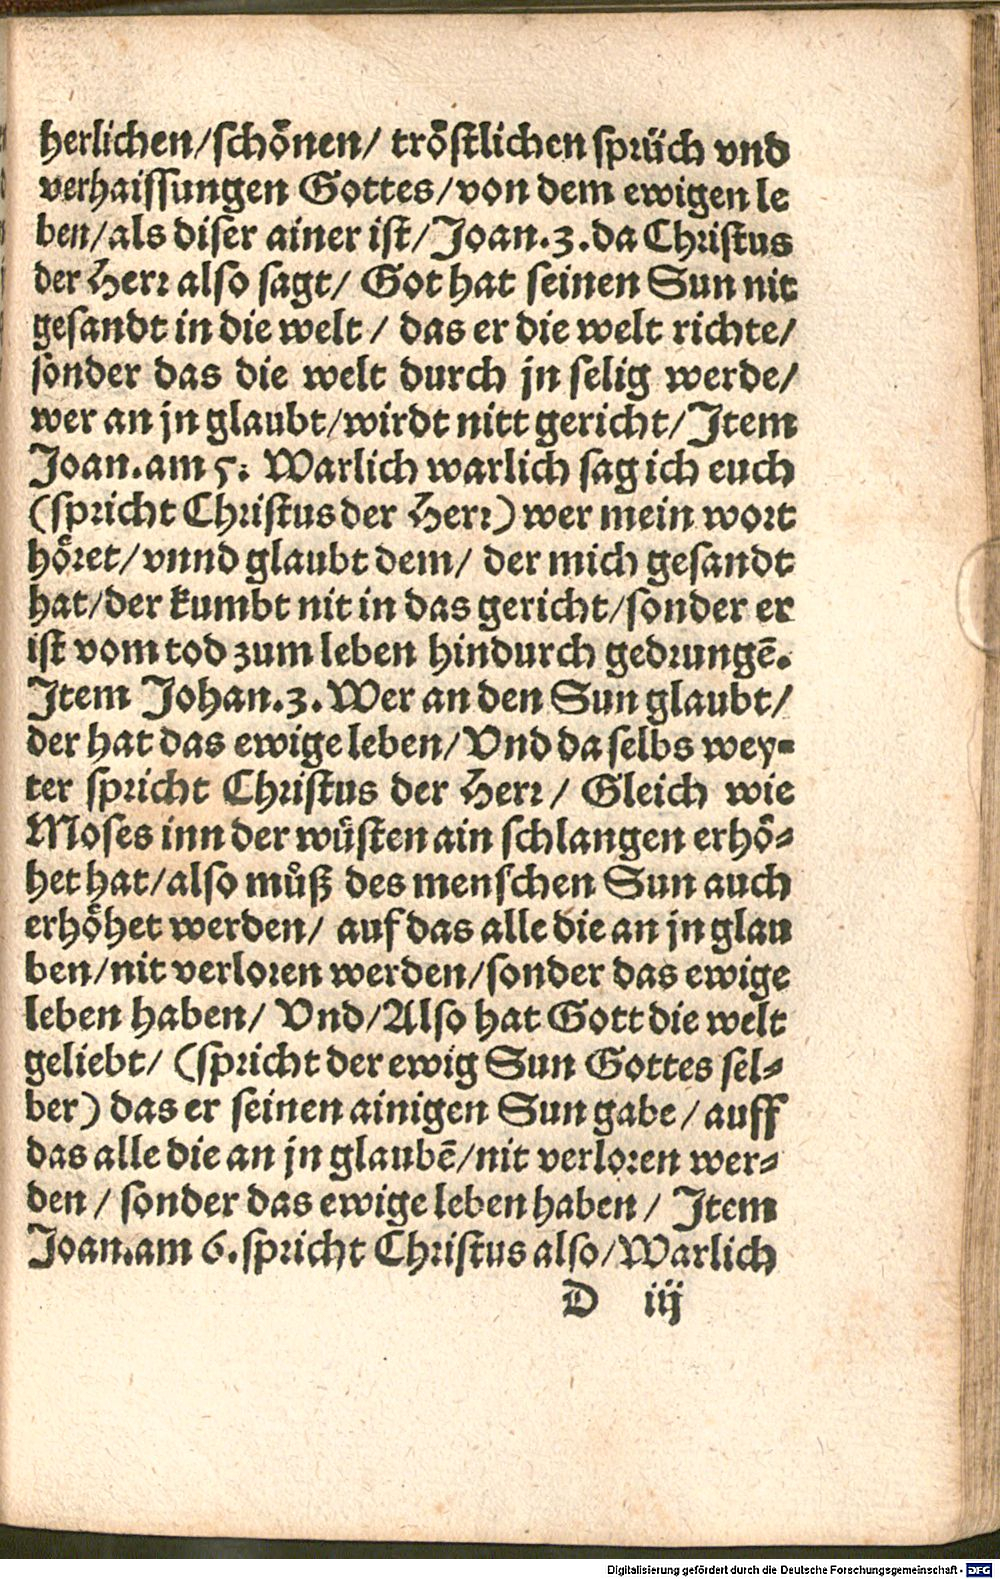 herlichen/schoͤnen/ troͤstlichen spruͤch vnd
verhaissungen Gottes/von dem ewigen le
ben/als diser ainer ist/Joan.3.da Christus
der Herr also sagt/ Got hat seinen Sun nit
gesandt in die welt/ das er die welt richte/
sonder das die welt durch jn selig werde/
wer an jn glaubt/wirdt nitt gericht/Jtem
Joan.am 5: Warlich warlich sag ich euch
(spricht Christus der Herr) wer mein wort
hoͤret/vnnd glaubt dem/ der mich gesandt
hat/der kumbt nit in das gericht/sonder er
ist vom tod zum leben hindurch gedrungē.
Jtem Johan.3.Wer an den Sun glaubt/
der hat das ewige leben/Vnd da selbs wey-
ter spricht Christus der Herr/ Gleich wie
Moses inn der wuͤsten ain schlangen erhoͤ-
het hat/also muͦß des menschen Sun auch
erhoͤhet werden/ auf das alle die an jn glau
ben/nit verloren werden/sonder das ewige
leben haben/ Vnd/Also hat Gott die welt
geliebt/ (spricht der ewig Sun Gottes sel-
ber) das er seinen ainigen Sun gabe/auff
das alle die an jn glaubē/nit verloren wer-
den/ sonder das ewige leben haben/ Jtem
Joan.am 6.spricht Christus also/Warlich
D iij
Digitalisierung gefördert durch die Deutsche Forschungsgemeinschaft - DFG